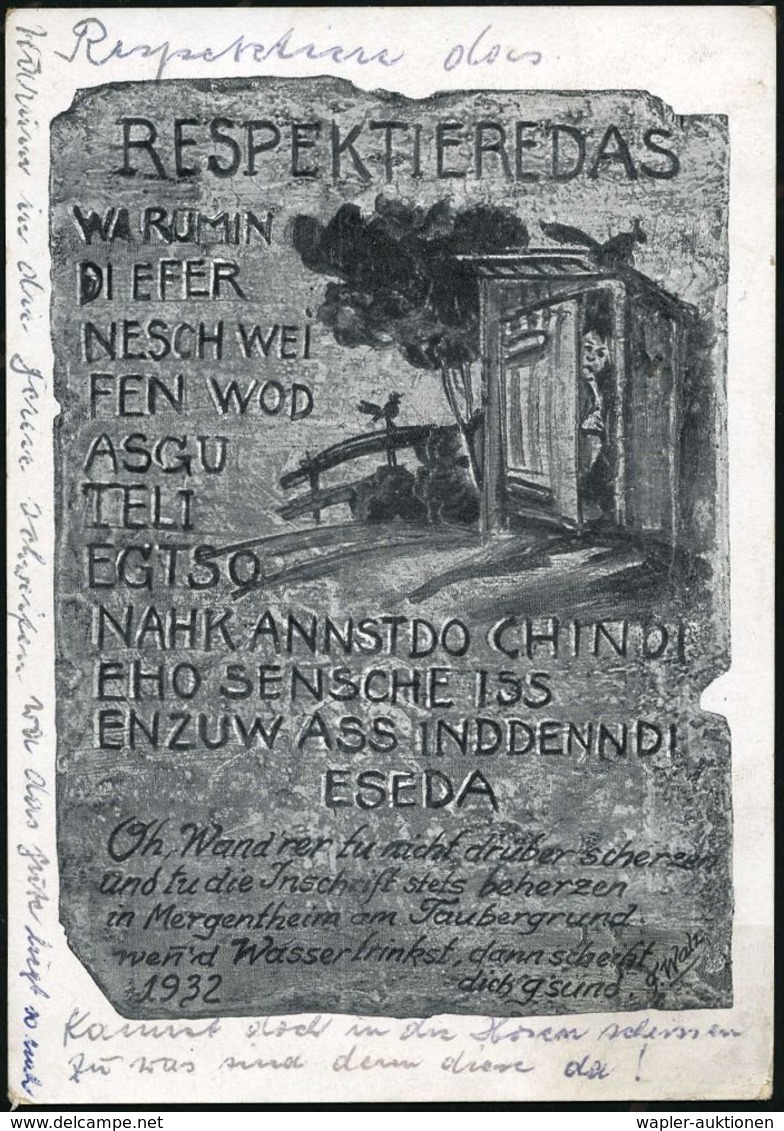 Respektiere das
RESPEKTIEREDAS
WARUMIN
DIEFER
NESCHWEI
FEN WOD
ASGU
TELI
EGTSO
NAHKANNSTDO CHINDI
EHO SENSCHE ISS
ENZUW ASS INDDENNDI
ESEDA
Oh, Wand'rer tu nicht drüber scherzen
und tu die Inschrift stets beherzen
in Mergentheim am Taubergrund.
wen̄'d Wasser trinkst, dann scheißt
dich g'sund.
1932
F. Walz
Warum in die Ferne schweifen wo das gute liegt so nah
Kannst doch in die Hosen scheissen
zu was sind denn diese da!
wapler-auktionen